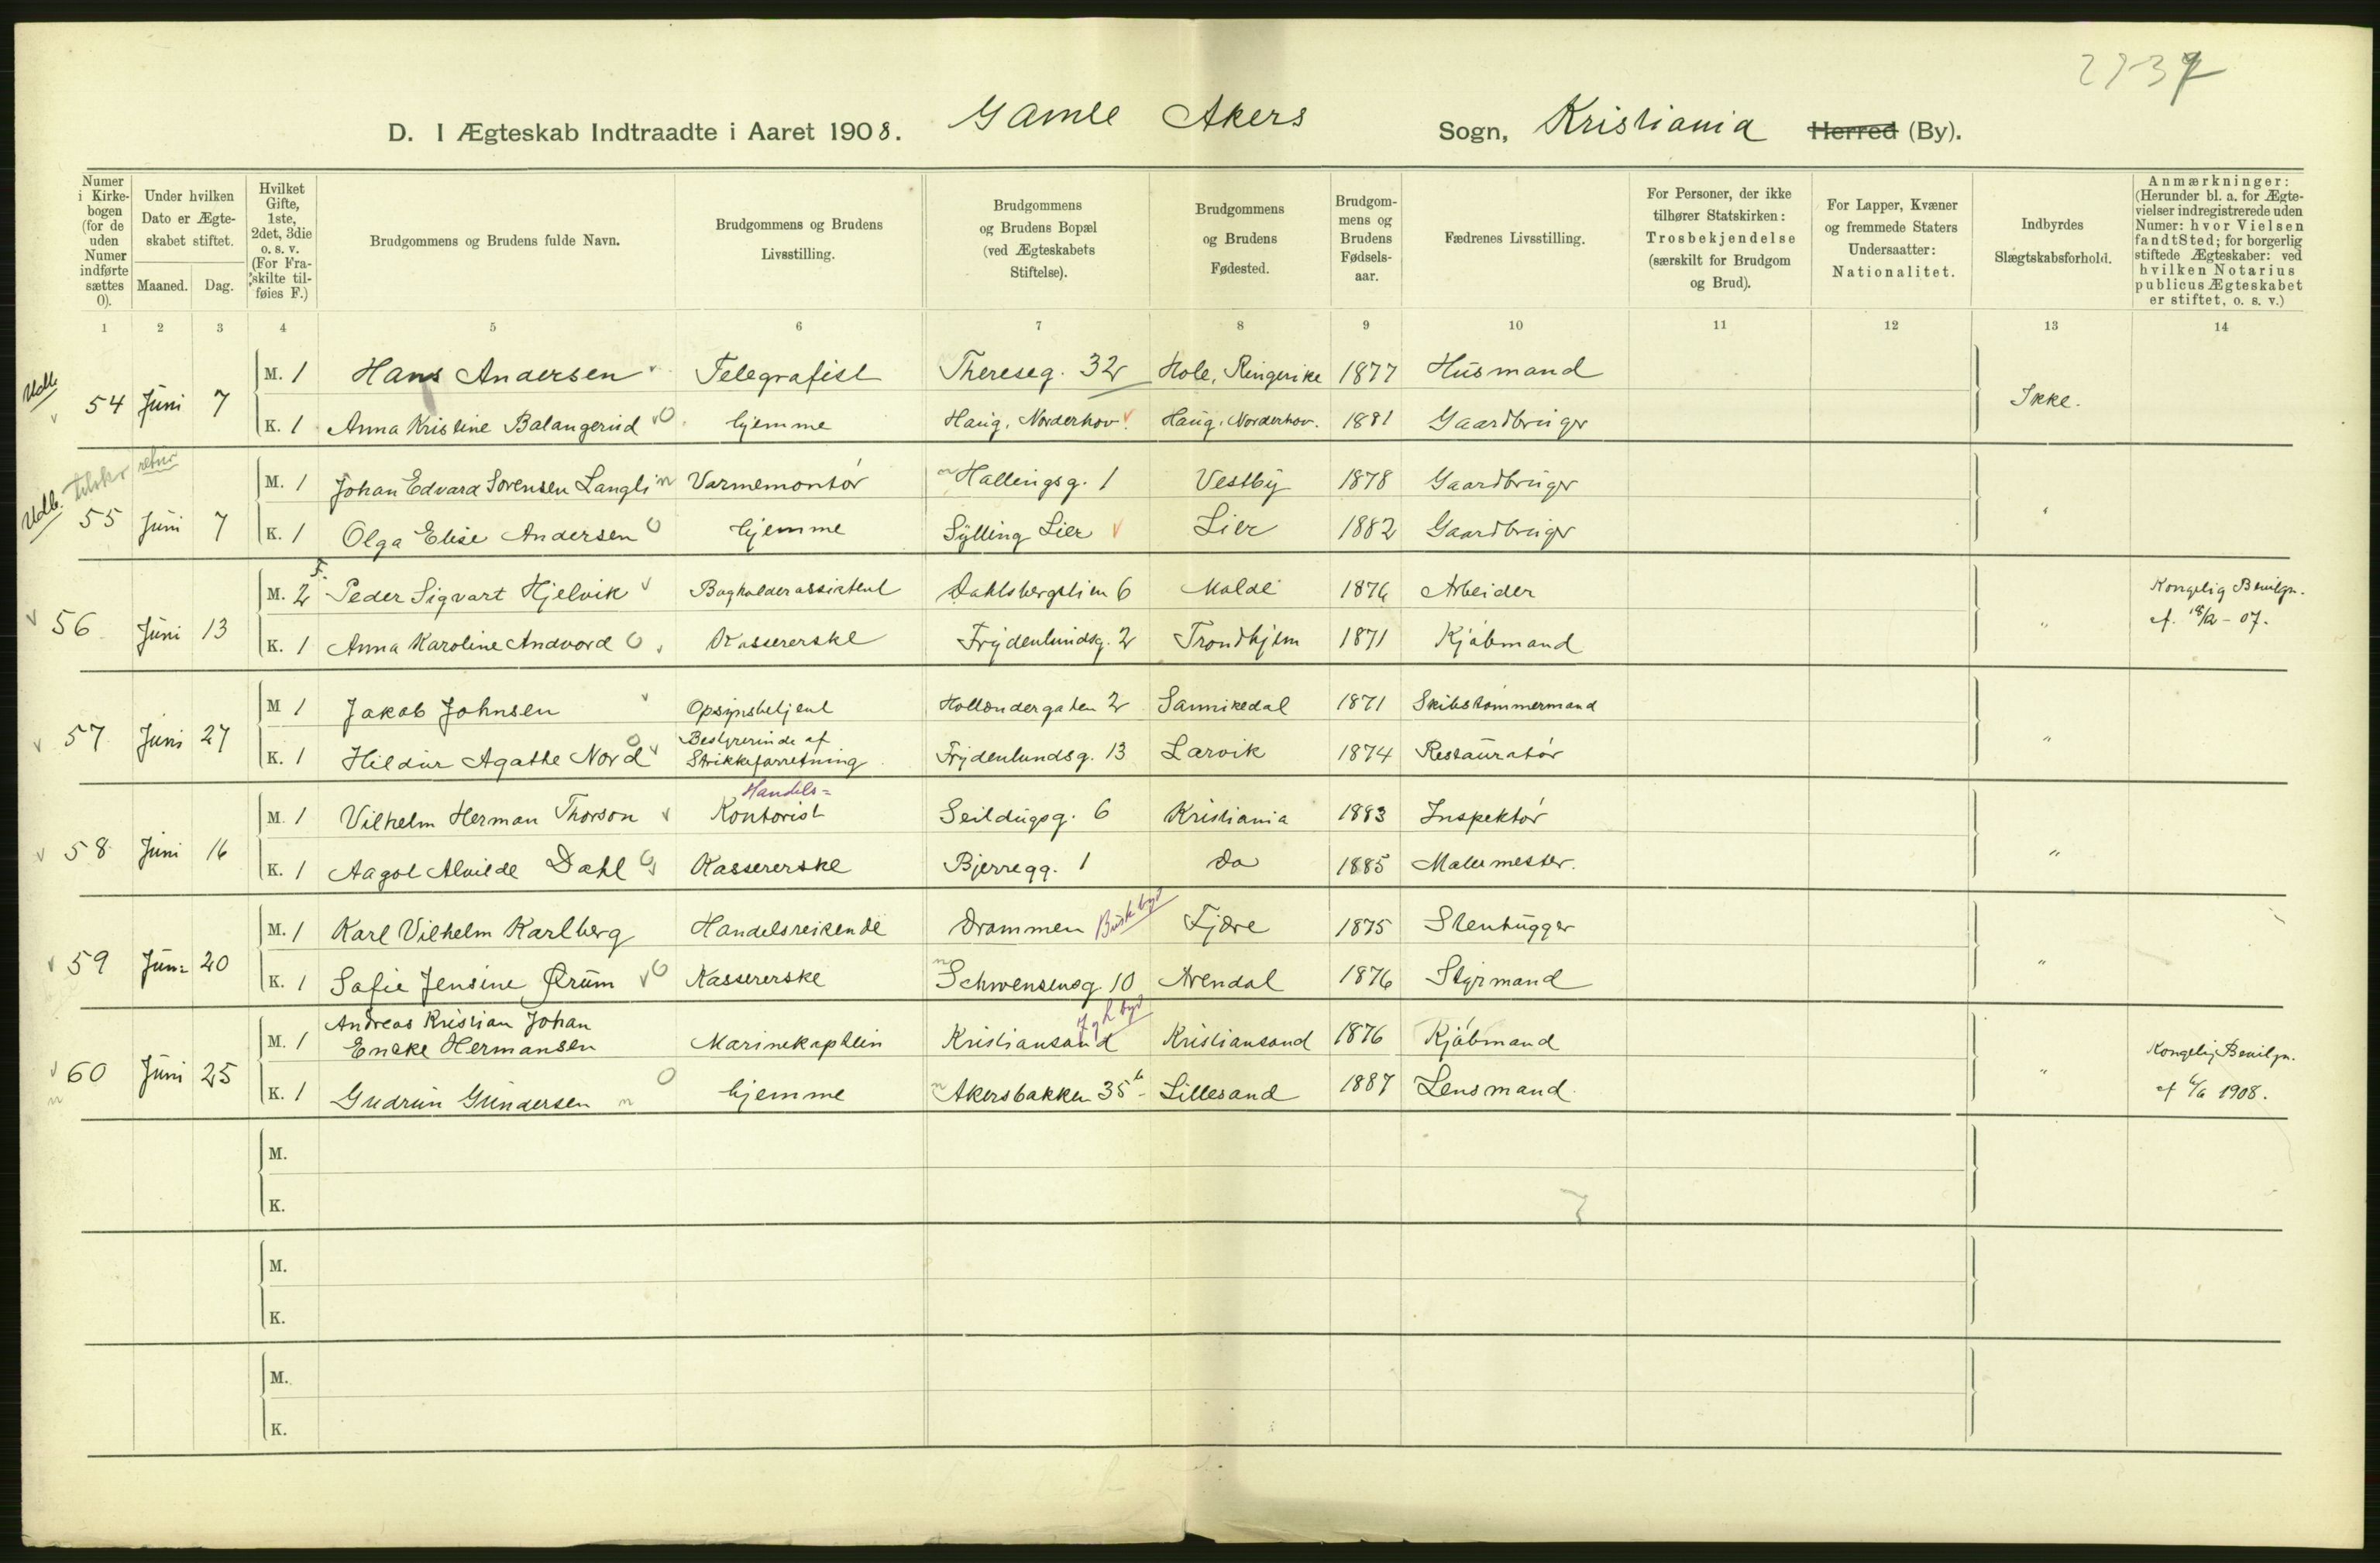 2737
D. I Ægteskab Indtraadte i Aaret 1908. Gamle Akers Sogn, Kristiania Herred (By).
Numer i Kirkebogen (for de uden Numer indførte sættes 0).
Under hvilken Dato er Ægteskabet stiftet.
Maaned. Dag.
Hvilket Gifte, 1ste, 2det, 3die o. s. v. (For Fraskilte tilføies F.)
Brudgommens og Brudens fulde Navn.
Brudgommens og Brudens Livsstilling.
Brudgommens og Brudens Bopæl (ved Ægteskabets Stiftelse).
Brudgommens og Brudens Fødested.
Brudgommens og Brudens Fødselsaar.
Fædrenes Livsstilling.
For Personer, der ikke tilhører Statskirken: Trosbekjendelse (særskilt for Brudgom og Brud).
For Lapper, Kvæner og fremmede Staters Undersaatter: Nationalitet.
Indbyrdes Slægtskabsforhold.
Anmærkninger: (Herunder bl. a. for Ægtevielser indregistrerede uden Numer: hvor Vielsen fandt Sted; for borgerlig stiftede Ægteskaber: ved hvilken Notarius publicus Ægteskabet er stiftet, o. s. v.)
1 2 3 4 5 6 7 8 9 10 11 12 13 14
Udb.
M. 1 Hans Andersen Telegrafist Thereseg. 32 Hole, Ringerike 1877 Husmand
54 Juni 7 Ikke.
K. 1 Anna Kristine Balangerud hjemme Haug, Norderhov. Haug, Norderhov. 1881 Gaardbruger
Udb. tilskr retur
M. 1 Johan Edvard Sorensen Langli Varmemontør Hallingsg. 1 Vestby 1878 Gaardbruger
55 Juni 7 "
K. 1 Olga Elise Andersen hjemme Sylling Lier Lier 1882 Gaardbruger
M. 2 F. Peder Sigvart Hjelvik Bogholderassistent Dahlsbergstien 6 Molde 1876 Arbeider Kongelig Bevilgn.
56 Juni 13 " af 18/12 - 07.
K. 1 Anna Karoline Andvord Kassererske Frydenlundsg. 2 Trondhjem 1871 Kjøbmand
M 1 Jakob Johnsen Opsynsbetjent Hollændergaten 2 Sannikedal 1871 Skibstømmermand
57 Juni 27 "
K. 1 Hildur Agathe Nord Bestyrerinde af Strikkeforretning Frydenlundsg. 13 Larvik 1874 Restauratør
M. 1 Vilhelm Herman Thorson Handels= Kontorist Seildugsg. 6 Kristiania 1883 Inspektør
58 Juni 16 "
K. 1 Aagot Alvilde Dahl Kassererske Bjerregg. 1 Do 1885 Malermester.
M. 1 Karl Vilhelm Karlberg Handelsreisende Drammen Busk byd Fjære 1875 Stenhugger
59 Jun= 20 "
K. 1 Sofie Jensine Ørum Kassererske Schwensensg 10 Arendal 1876 Styrmand
M. 1 Andreas Kristian Johan Encke Hermansen Marinekaptein Kristiansand Kristiansand 1876 Kjøbmand Kongelig Bevilgn.
60 Juni 25 " af 6/6 1908.
K. 1 Gudrun Gundersen hjemme Akersbakken 35 b Lillesand 1887 Lensmand
M.
K.
M.
K.
M.
K.